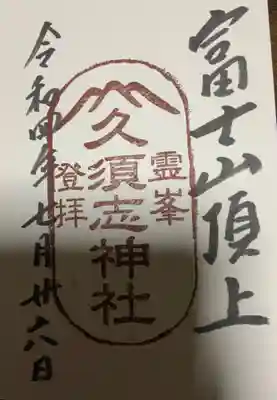 富士山頂上
霊峯
久須志神社
登拝
令和四年七月廿六日